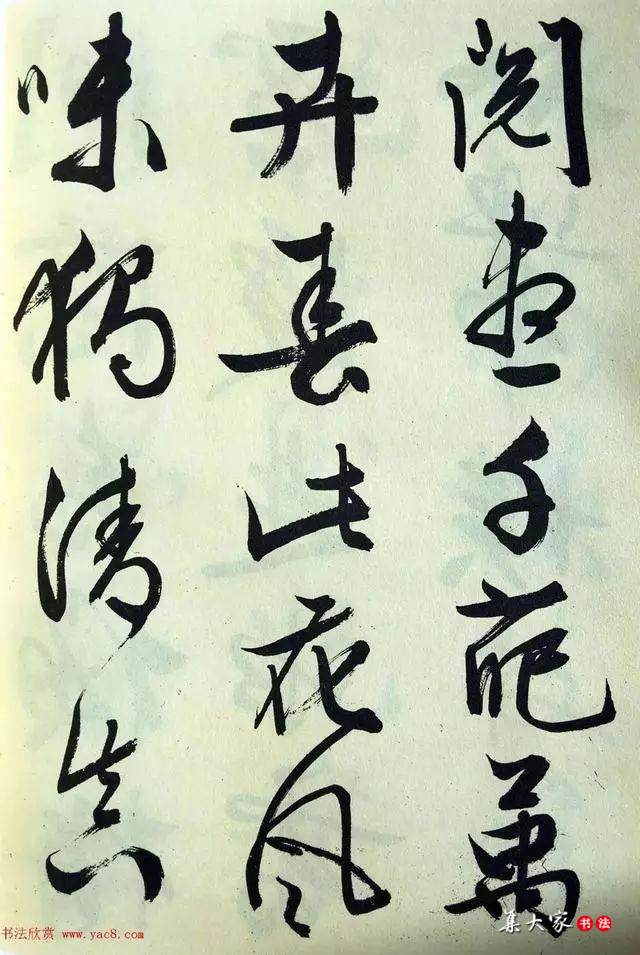 阅尽千葩萬
卉春此花风
味獨清真
集大家书法
书法欣赏 www.yac8.com